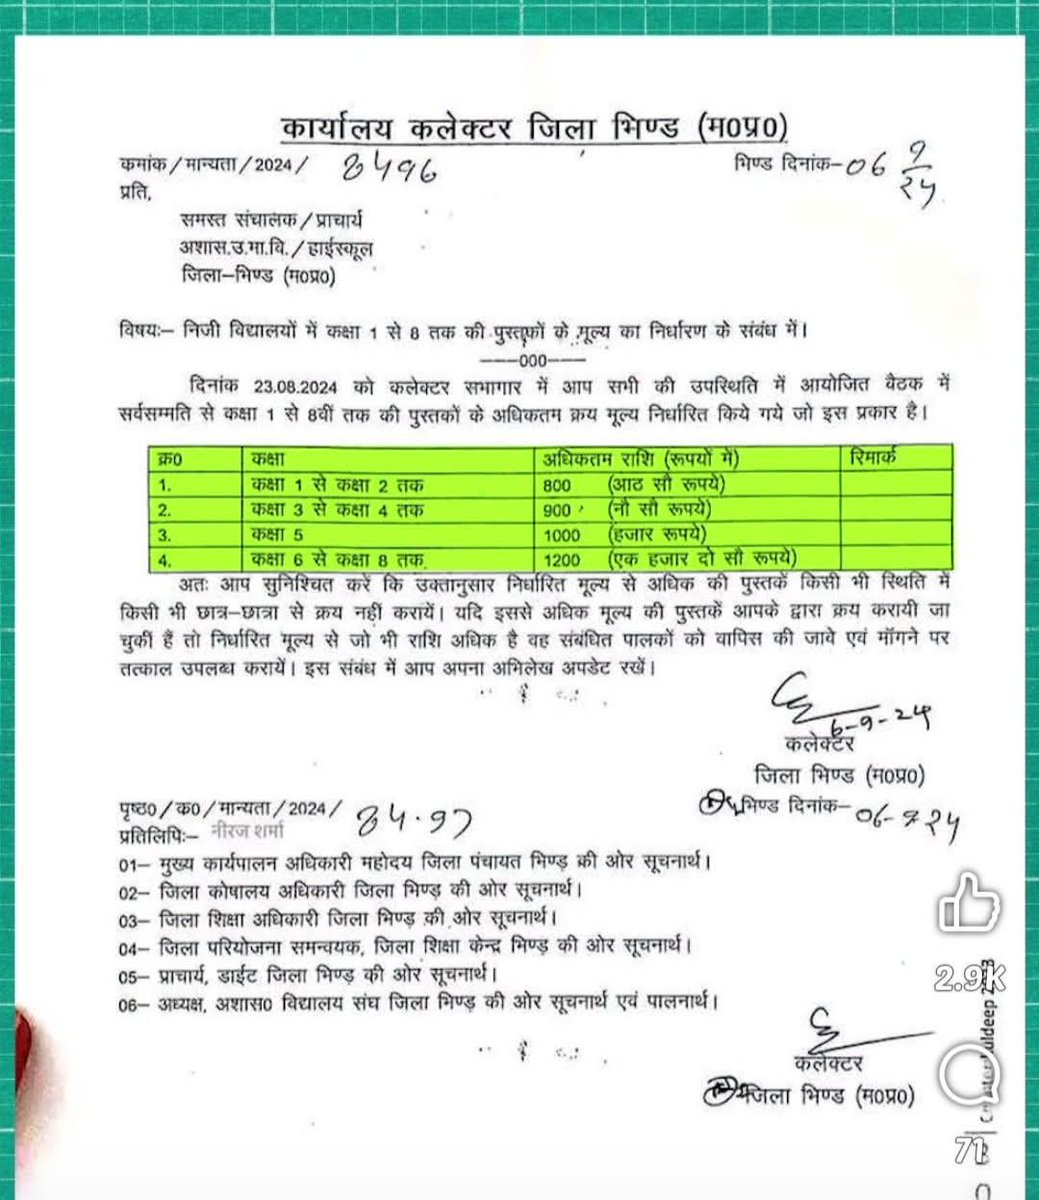 कार्यालय कलेक्टर जिला भिण्ड (म0प्र0)
कमांक/मान्यता/2024/ 8496 भिण्ड दिनांक-06 9/24
प्रति,
समस्त संचालक/प्राचार्य
अशास.उ.मा.वि./हाईस्कूल
जिला-भिण्ड (म0प्र0)
विषयः- निजी विद्यालयों में कक्षा 1 से 8 तक की पुस्तकों के मूल्य का निर्धारण के संबंध में।
——000——
दिनांक 23.08.2024 को कलेक्टर सभागार में आप सभी की उपस्थिति में आयोजित वैठक में
सर्वसम्मति से कक्षा 1 से 8वीं तक की पुस्तकों के अधिकतम क्रय मूल्य निर्धारित किये गये जो इस प्रकार है।
क्र0 कक्षा अधिकतम राशि (रूपयों में) रिमार्क
1. कक्षा 1 से कक्षा 2 तक 800 (आठ सौ रूपये)
2. कक्षा 3 से कक्षा 4 तक 900 (नौ सौ रूपये)
3. कक्षा 5 1000 (हजार रूपये)
4. कक्षा 6 से कक्षा 8 तक 1200 (एक हजार दो सौ रूपये)
अतः आप सुनिश्चित करें कि उक्तानुसार निर्धारित मूल्य से अधिक की पुस्तकें किसी भी स्थिति में
किसी भी छात्र-छात्रा से क्रय नहीं करायें। यदि इससे अधिक मूल्य की पुस्तकें आपके द्वारा क्रय करायी जा
चुकीं हैं तो निर्धारित मूल्य से जो भी राशि अधिक है वह संबंधित पालकों को वापिस की जावे एवं मॉगने पर
तत्काल उपलब्ध करायें। इस संबंध में आप अपना अभिलेख अपडेट रखें।
6-9-24
कलेक्टर
जिला भिण्ड (म0प्र0)
पृष्ठ0/क0/मान्यता/2024/ 84.97 भिण्ड दिनांक- 06-9 24
प्रतिलिपिः- नीरज शर्मा
01- मुख्य कार्यपालन अधिकारी महोदय जिला पंचायत भिण्ड की ओर सूचनार्थ।
02- जिला कोषालय अधिकारी जिला भिण्ड की ओर सूचनार्थ।
03- जिला शिक्षा अधिकारी जिला भिण्ड की ओर सूचनार्थ।
04- जिला परियोजना समन्वयक, जिला शिक्षा केन्द्र भिण्ड की ओर सूचनार्थ।
05- प्राचार्य, डाईट जिला भिण्ड की ओर सूचनार्थ।
06- अध्यक्ष, अशास0 विद्यालय संघ जिला भिण्ड की ओर सूचनार्थ एवं पालनार्थ।
कलेक्टर
जिला भिण्ड (म0प्र0)
2.9K
71